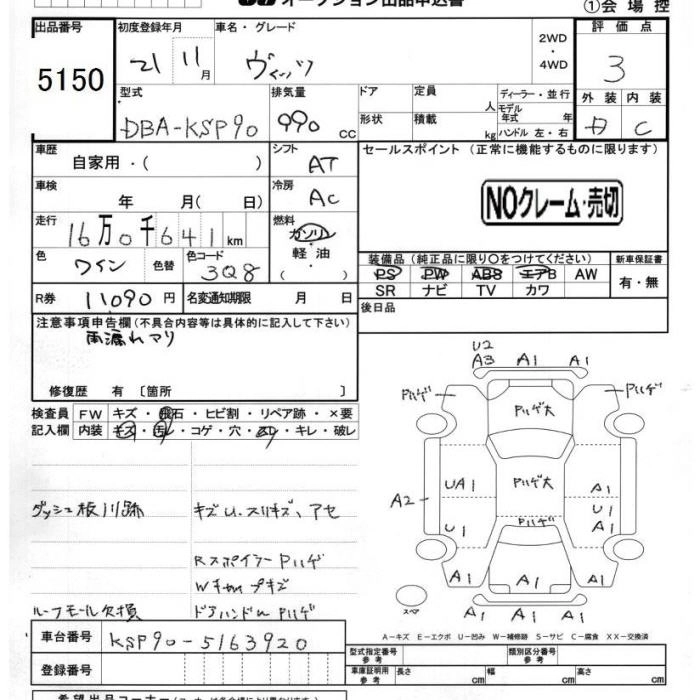 オークション出品申込書
①会場控
出品番号 初度登録年月 車名・グレード 2WD・4WD 評価点
5150 21 11月 ヴィッツ 3
型式 排気量 ドア 定員 人 ディーラー・並行 外装 内装
DBA-KSP90 990cc 形状 積載 kg モデル年式 年 ハンドル 左・右 C
車歴 シフト セールスポイント (正常に機能するものに限ります)
自家用・( ) AT
車検 冷房
年 月(日) AC
NOクレーム・売切
走行 燃料
16万0千641km ガソリン
軽油
( )
色 色替 色コード
ワイン 3Q8
装備品 (純正品に限り○をつけてください) 新車保証書
PS PW ABS エアB AW 有・無
SR ナビ TV カワ
R券 11090円 名変通知期限 月 日
後日品
注意事項申告欄 (不具合内容等は具体的に記入して下さい)
雨漏れアリ
修復歴 有 〔箇所 〕
検査員 FW キズ・飛石・ヒビ割・リペア跡・×要
記入欄 内装 キズ・汚レ・コゲ・穴・スレ・キレ・破レ
U2
A3 A1 A1
Pハゲ Pハゲ
Pハゲ大
UA1 Pハゲ大 A1
A2 U1
U1 Pハゲ A1
A1 A1 A1
A1 A1
スペア
ダッシュ板川跡 キズU、スリキズ、アセ
Rスポイラー Pハゲ
Wキャップキズ
ルーフモール欠損 ドアハンドル Pハゲ
A−キズ E−エクボ U−凹み W−補修跡 S−サビ C−腐食 XX−交換済
車台番号 KSP90-5163920
型式指定番号 参考 類別区分番号 参考
登録番号
車庫証明用 参考 長さ cm 幅 cm 高さ cm
希望出品コーナー